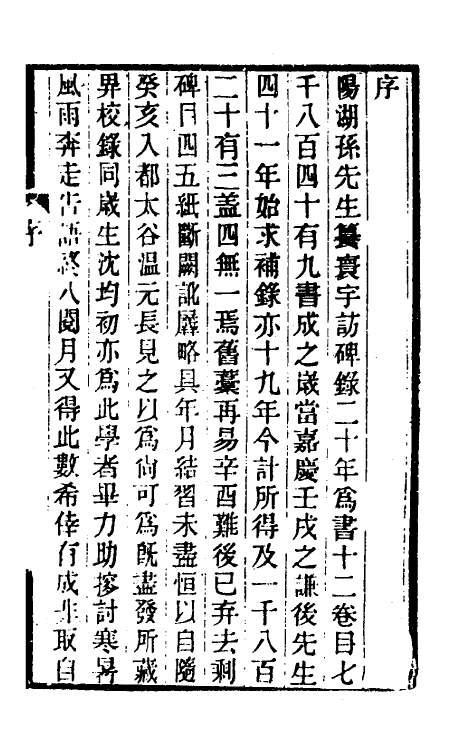 序
陽湖孫先生纂寰宇訪碑錄二十年為書十二卷目七
千八百四十有九書成之歲當嘉慶壬戌之謙後先生
四十一年始求補錄亦十九年今計所得及一千八百
二十有三蓋四無一焉舊藁再易辛酉難後已弃去剩
碑目四五紙斷闕訛㞕略具年月結習未盡恒以自隨
癸亥入都太谷温元長見之以為尚可為旣盡發所藏
畀校錄同歲生沈均初亦為此學者畢力助搜討寒暑
風雨奔走告語終八閱月又得此數希倖有成非取自
序